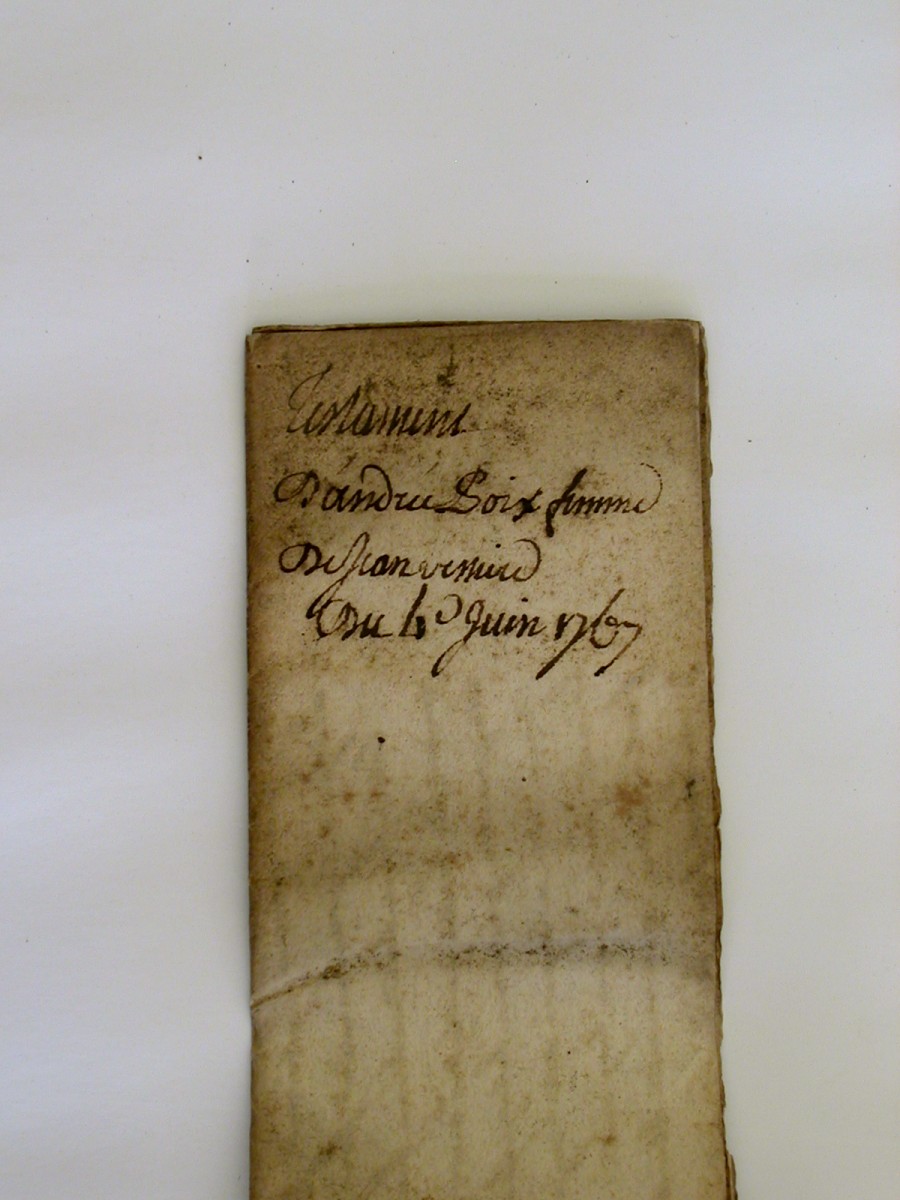 Testament
D'andrée Poix femme
De Jean vessiere
Du 4e Juin 1767